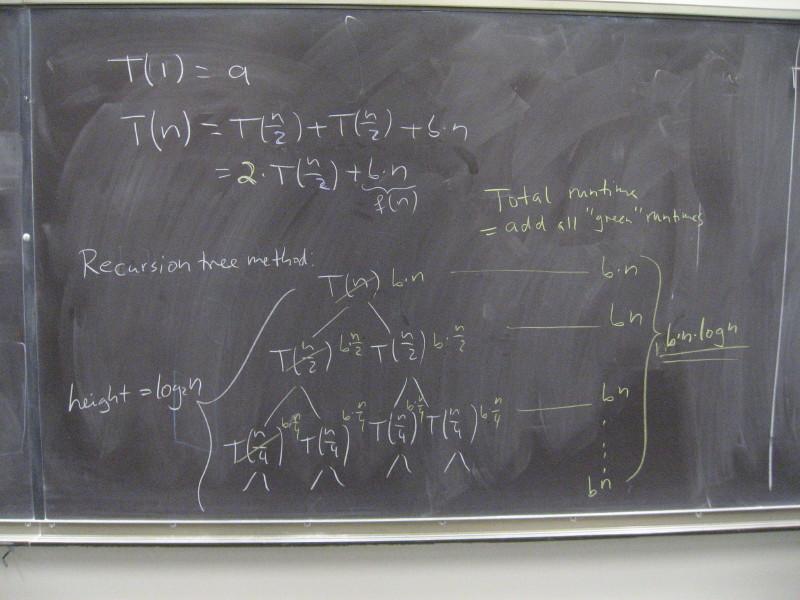 T(1) = a
T(n) = T(n/2) + T(n/2) + b·n
= 2·T(n/2) + b·n
f(n)
Total runtime
= add all "green" runtimes
Recursion tree method:
T(n) b·n b·n
T(n/2) b·n/2 T(n/2) b·n/2 bn
b·n·logn
height = log₂n
T(n/4) b·n/4 T(n/4) b·n/4 T(n/4) b·n/4 T(n/4) b·n/4 bn
bn